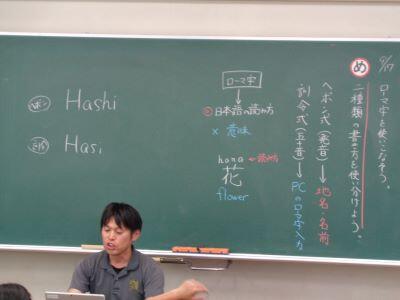 9/17
ローマ字を使いこなそう。
め
二種類の書き方を使い分けよう。
ヘボン式(発音)→地名・名前
訓令式(五十音)→PCのローマ字入力
ローマ字
日本語の読み方
× 意味
hana ←読み方
花
flower
ヘボン
Hashi
訓令
Hasi